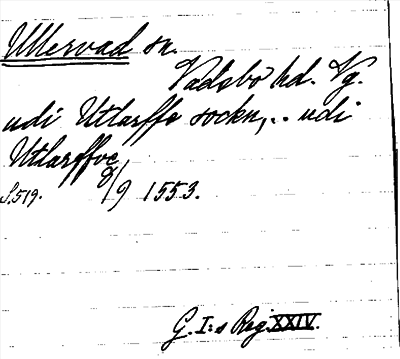 Ullervad sn.
Vadsbo hd. Vg.
udi Utlarffe sockn,.. udi
Utlarffve
S.519. 8/9 1553.
G. I:s Reg. XXIV.